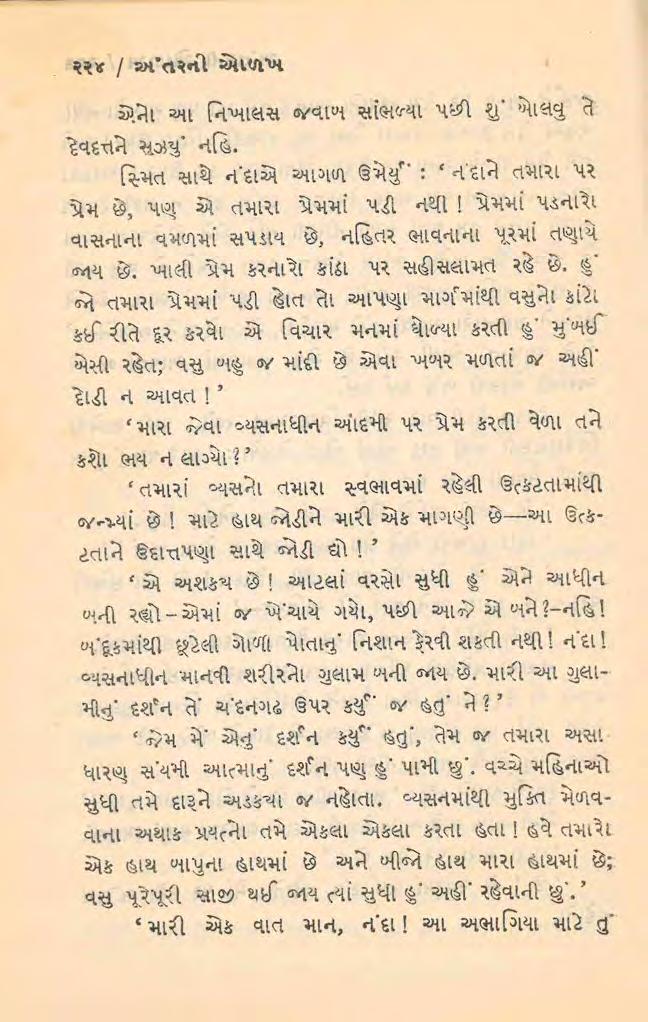 ૨૨૪ / અંતરની ઓળખ
એનો આ નિખાલસ જવાબ સાંભળ્યા પછી શું બોલવુ તે
દેવદત્તને સુઝયું નહિ.
સ્મિત સાથે નંદાએ આગળ ઉમેર્યું : ‘ નંદાને તમારા પર
પ્રેમ છે, પણ એ તમારા પ્રેમમાં પડી નથી ! પ્રેમમાં પડનારો
વાસનાના વમળમાં સપડાય છે, નહિતર ભાવનાના પૂરમાં તણાયે
જાય છે. ખાલી પ્રેમ કરનારો કાંઠા પર સહીસલામત રહે છે. હું
જો તમારા પ્રેમમાં પડી હોત તો આપણા માર્ગમાંથી વસુનો કાંટો
કઈ રીતે દૂર કરવો એ વિચાર મનમાં ઘોળ્યા કરતી હું મુંબઈ
બેસી રહેત; વસુ બહુ જ માંદી છે એવા ખબર મળતાં જ અહીં
દોડી ન આવત ! ’
‘ મારા જેવા વ્યસનાધીન આદમી પર પ્રેમ કરતી વેળા તને
કશો ભય ન લાગ્યો ? ’
‘ તમારાં વ્યસનો તમારા સ્વભાવમાં રહેલી ઉત્કટતામાંથી
જન્મ્યાં છે ! માટે હાથ જોડીને મારી એક માગણી છે—આ ઉત્ક-
ટતાને ઉદાત્તપણા સાથે જોડી દ્યો ! ’
‘ એ અશકય છે ! આટલાં વરસો સુધી હું એને આધીન
બની રહ્યો – એમાં જ ખેંચાયે ગયો, પછી આજે એ બને ?–નહિ !
બંદૂકમાંથી છૂટેલી ગોળી પોતાનું નિશાન ફેરવી શકતી નથી ! નંદા !
વ્યસનાધીન માનવી શરીરનો ગુલામ બની જાય છે. મારી આ ગુલા-
મીનું દર્શન તેં ચંદનગઢ ઉપર કર્યું જ હતું ને ? ’
‘ જેમ મેં એનું દર્શન કર્યું હતું, તેમ જ તમારા અસા
ધારણ સંયમી આત્માનું દર્શન પણ હું પામી છું. વચ્ચે મહિનાઓ
સુધી તમે દારૂને અડકયા જ નહોતા. વ્યસનમાંથી મુક્તિ મેળવ-
વાના અથાક પ્રયત્નો તમે એકલા એકલા કરતા હતા ! હવે તમારો
એક હાથ બાપુના હાથમાં છે અને બીજો હાથ મારા હાથમાં છે;
વસુ પૂરેપૂરી સાજી થઈ જાય ત્યાં સુધી હું અહીં રહેવાની છું. ’
‘ મારી એક વાત માન, નંદા ! આ અભાગિયા માટે તું